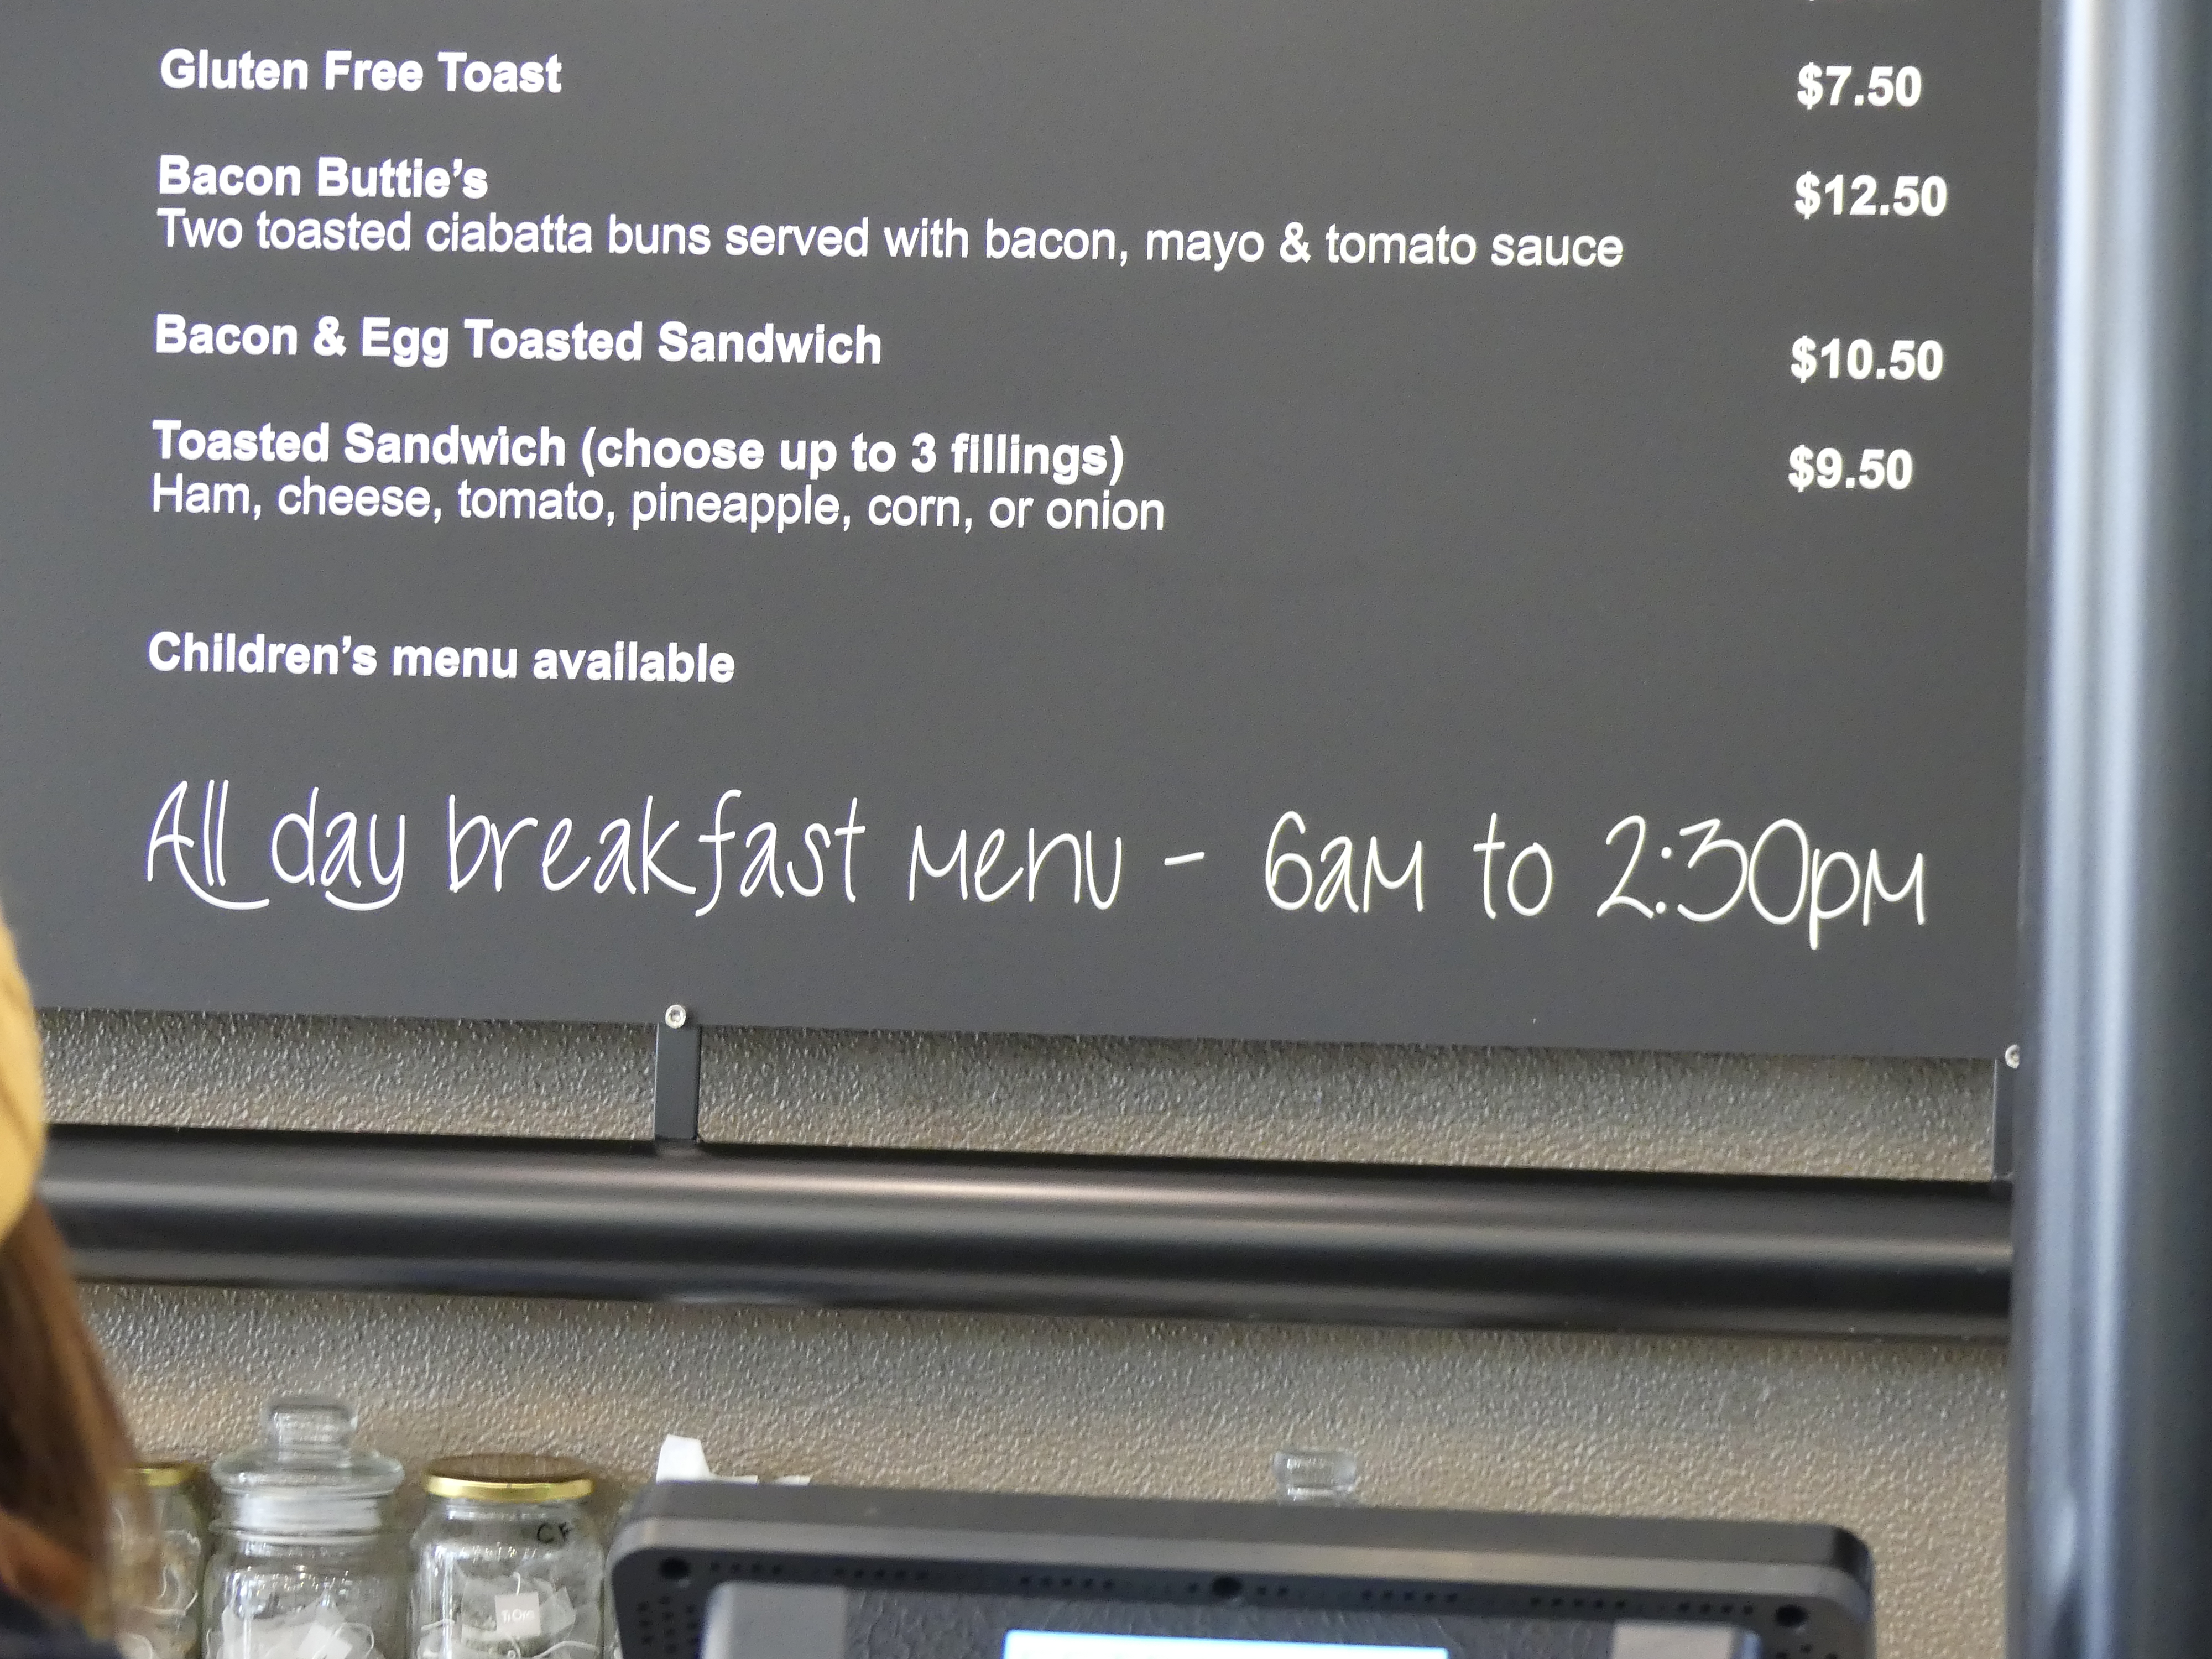 Gluten Free Toast $7.50
Bacon Buttie’s $12.50
Two toasted ciabatta buns served with bacon, mayo & tomato sauce
Bacon & Egg Toasted Sandwich $10.50
Toasted Sandwich (choose up to 3 fillings) $9.50
Ham, cheese, tomato, pineapple, corn, or onion
Children’s menu available
All day breakfast menu - 6am to 2:30pm